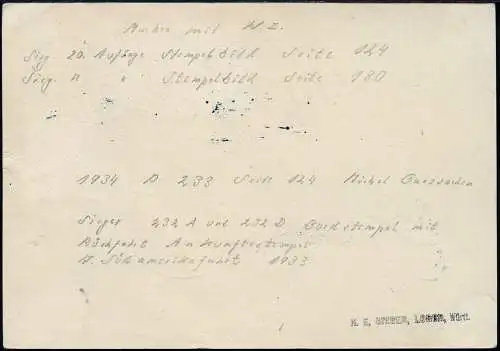 Marken mit W Z.
Sieg. 20. Auflage Stempelbild Seite 124
Sieg. 11 " Stempelbild Seite 180
1934 B 233 Seite 124 Michel
Sieger 232 A und 232 D Bordstempel mit
Rückfahrt Ankunftsstempel
7. Südamerikafahrt 1933
H. E. SIEGER, LORCH, Württ.